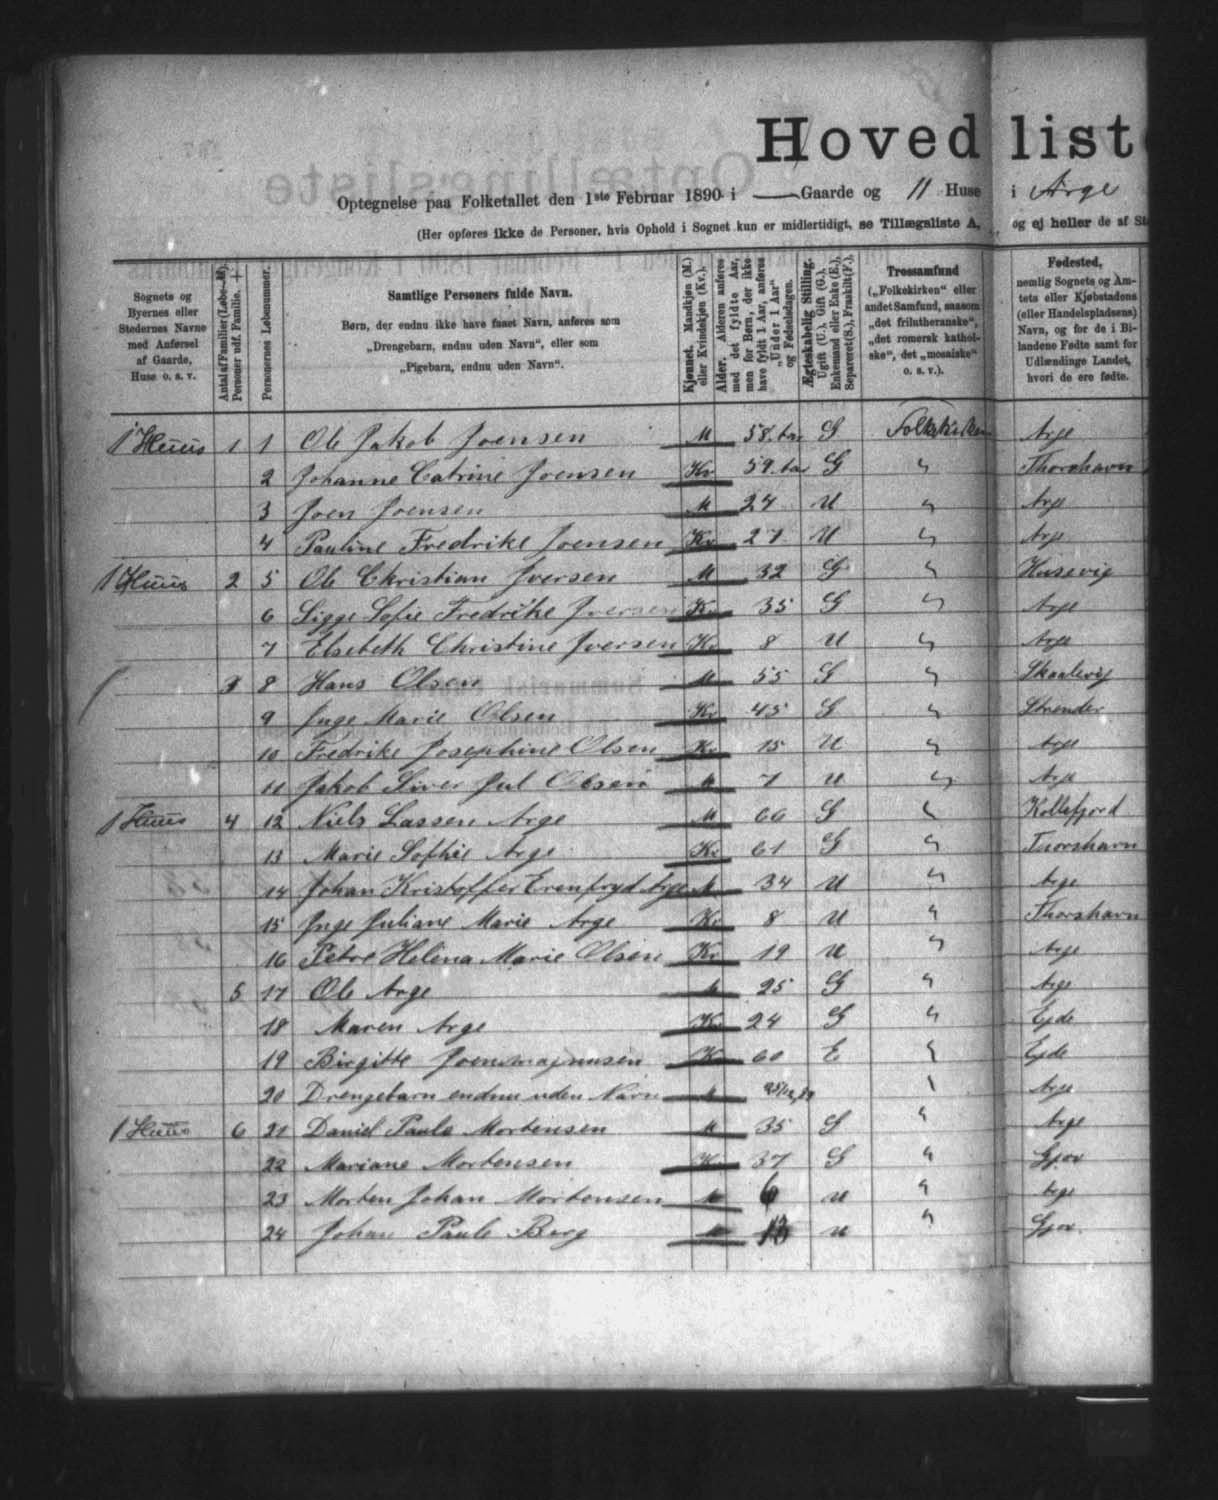 Hovedliste
Optegnelse paa Folketallet den 1ste Februar 1890 i — Gaarde og 11 Huse i Arge
(Her opføres ikke de Personer, hvis Ophold i Sognet kun er midlertidigt, se Tillægsliste A, og ej heller de af
Sognets og Byernes eller Stedernes Navne med Anførsel af Gaarde, Huse o. s. v.
Antal af Familier (Løbe-№). Personer udf. Familie. +
Personernes Løbenummer.
Samtlige Personers fulde Navn.
Børn, der endnu ikke have faaet Navn, anføres som
„Drengebarn, endnu uden Navn“, eller som
„Pigebarn, endnu uden Navn“.
Kjønnet. Mandkjøn (M.) eller Kvindekjøn (Kv.).
Alder. Alderen anføres med det fyldte Aar, men for Børn, der ikke have fyldt 1 Aar, anføres „Under 1 Aar“ og Fødselsdagen.
Ægteskabelig Stilling. Ugift (U.), Gift (G.), Enkemand eller Enke (E.), Separeret (S.), Fraskilt (F.).
Trossamfund („Folkekirken“ eller andet Samfund, saasom „det frilutheranske“, „det romersk katholske“, det „mosaiske“ o. s. v.).
Fødested, nemlig Sognets og Amtets eller Kjøbstadens (eller Handelspladsens) Navn, og for de i Bilandene Fødte samt for Udlændinge Landet, hvori de ere fødte.
1 Huus 1 1 Ole Jakob Joensen M 58 G Folkekirken Arge
2 Johanne Catrine Joensen Kv 59 G " Thorshavn
3 Joen Joensen M 24 U " Arge
4 Pauline Fredrike Joensen Kv 27 U " Arge
1 Huus 2 5 Ole Christian Iversen M 32 G " Husevig
6 Sigge Sofie Fredrike Iversen Kv 35 G " Arge
7 Elsebeth Christine Iversen Kv 8 U " Arge
3 8 Hans Olsen M 55 G " Skaalevig
9 Inge Marie Olsen Kv 45 G " Strender
10 Fredrike Josephine Olsen Kv 15 U " Arge
11 Jakob Olsen M 7 U " Arge
1 Huus 4 12 Niels Lassen Arge M 66 G " Kollefjord
13 Marie Sophie Arge Kv 61 G " Thorshavn
14 Johan Kristoffer Erenfryd Arge M 34 U " Arge
15 Inge Juliane Marie Arge Kv 8 U " Thorshavn
16 Petre Helena Marie Olsen Kv 19 U " Arge
5 17 Ole Arge M 25 G " Arge
18 Maren Arge Kv 24 G " Ejde
19 Birgitte Joensmagnusen Kv 60 E " Ejde
20 Drengebarn endnu uden Navn M " Arge
1 Huus 6 21 Daniel Paule Mortensen M 35 G " Arge
22 Mariane Mortensen Kv 37 G " Gjov
23 Morten Johan Mortensen M 6 U " Arge
24 Johan Paule Berg M 13 U " Gjov